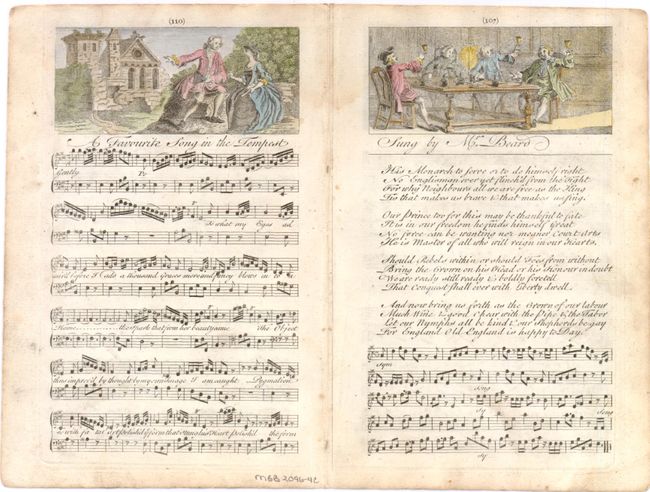 (110)
A Favourite Song in the Tempest
Gently
To what my Eyes ad
mir'd before I add a thousand Graces more and fancy blows in to a
Flame the Spark that from her beauty came The Object
thus improv'd by thought by my own Image I am caught Pygmalion
so with fatal Art polish'd the form that stung his Heart polish'd the form
MBB 2096-42
(107)
Sung by Mr. Beard
His Monarch to serve or to do himself right
No Englishman ever yet flinch'd from the Fight
For why Neighbours all we are free as the King
Tis that makes us brave & that makes us sing.
Our Prince too for this may be thankful to fate
It is in our freedom he finds himself Great
No force can be wanting nor meaner Court Arts
He is Master of all who will reign in our Hearts.
Should Rebels within or should Foes from without
Bring the Crown on his Head or his Honour in doubt
We are ready still ready & boldly foretell
That Conquest shall ever with Liberty dwell.
And now bring us forth as the Crown of our labour
Much Wine & good Chear with the Pipe & the Tabor
Let our Nymphs all be kind & our Shepherds be gay
For England Old England is happy to Day.
Sym
Song
Sy Song
Sy